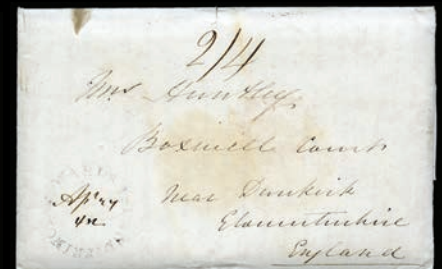 2/4
Mrs Huntley
Boxwell Court
Apl 27
42
Near Dunkirk
Gloucestershire
England